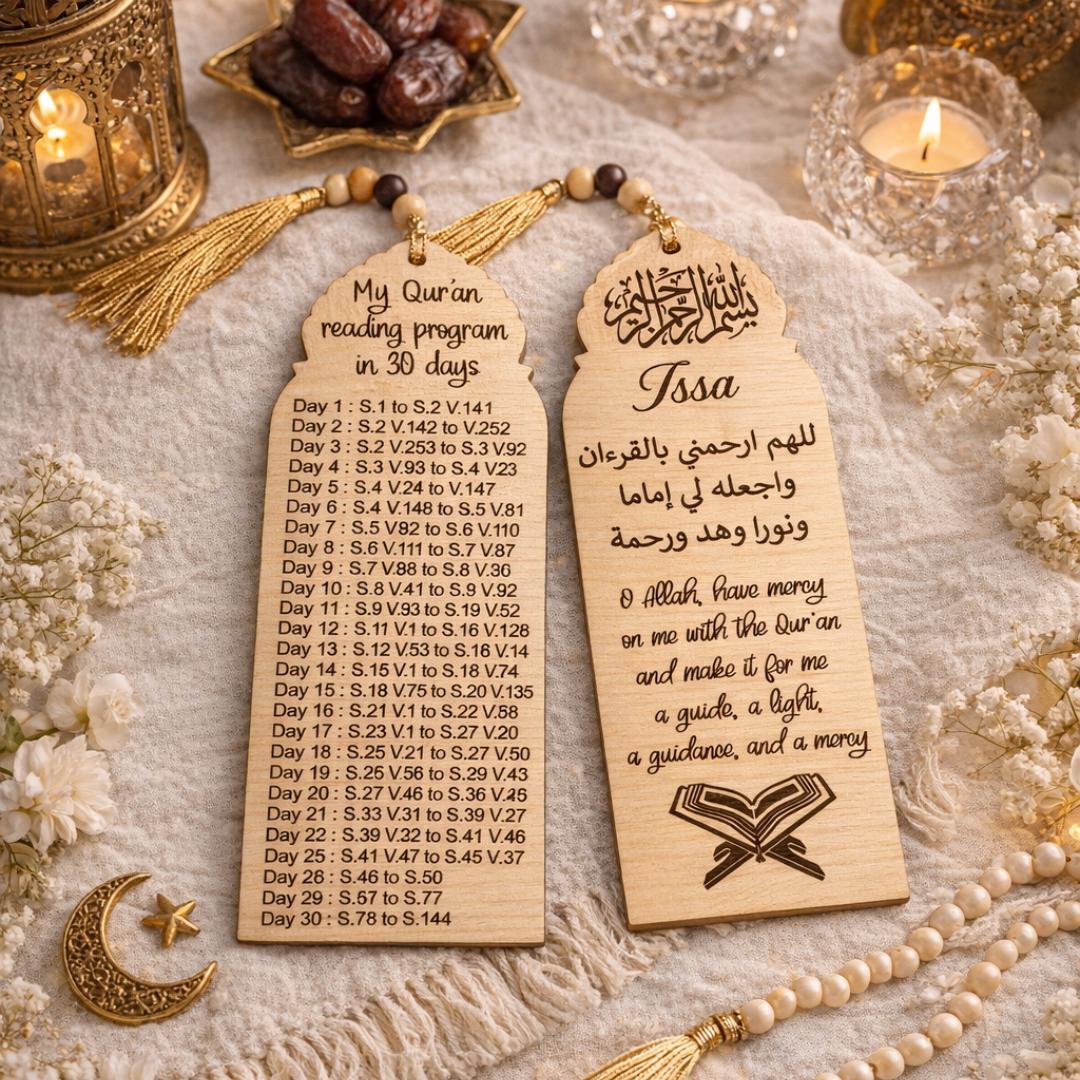 My Qur'an
reading program
in 30 days
Day 1 : S.1 to S.2 V.141
Day 2 : S.2 V.142 to V.252
Day 3 : S.2 V.253 to S.3 V.92
Day 4 : S.3 V.93 to S.4 V.23
Day 5 : S.4 V.24 to V.147
Day 6 : S.4 V.148 to S.5 V.81
Day 7 : S.5 V82 to S.6 V.110
Day 8 : S.6 V.111 to S.7 V.87
Day 9 : S.7 V.88 to S.8 V.36
Day 10 : S.8 V.41 to S.9 V.92
Day 11 : S.9 V.93 to S.19 V.52
Day 12 : S.11 V.1 to S.16 V.128
Day 13 : S.12 V.53 to S.16 V.14
Day 14 : S.15 V.1 to S.18 V.74
Day 15 : S.18 V.75 to S.20 V.135
Day 16 : S.21 V.1 to S.22 V.58
Day 17 : S.23 V.1 to S.27 V.20
Day 18 : S.25 V.21 to S.27 V.50
Day 19 : S.26 V.56 to S.29 V.43
Day 20 : S.27 V.46 to S.36 V.25
Day 21 : S.33 V.31 to S.39 V.27
Day 22 : S.39 V.32 to S.41 V.46
Day 25 : S.41 V.47 to S.45 V.37
Day 28 : S.46 to S.50
Day 29 : S.57 to S.77
Day 30 : S.78 to S.144
بسم الله الرحمن الرحيم
Issa
للهم ارحمني بالقرءان
واجعله لي إماما
ونورا وهد ورحمة
O Allah, have mercy
on me with the Qur'an
and make it for me
a guide, a light,
a guidance, and a mercy